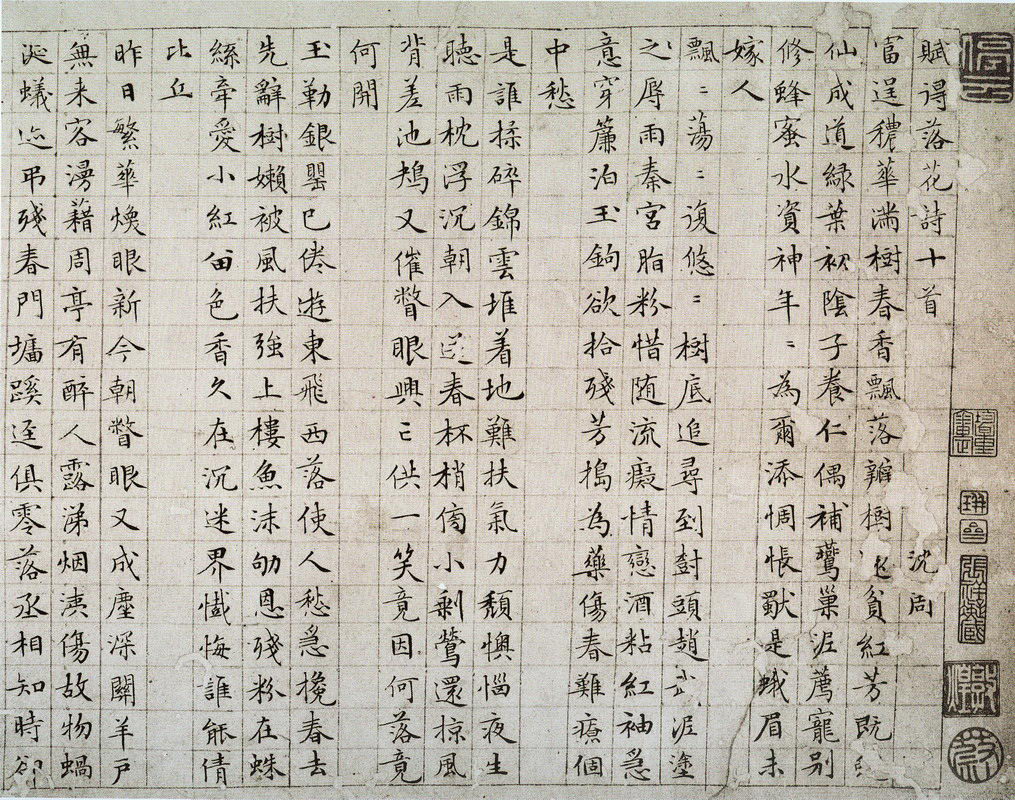 賦得落花詩十首 沈周
富逞穠華滿樹春香飄落瓣樹貧紅芳既
仙成道綠葉初陰子養仁偶補鶯巢泥薦寵別
修蜂蜜水資神年〻為爾添惆悵是蛾眉未
嫁人
飄〻蕩〻復悠〻樹底追尋到封頭趙武泥塗
之辱雨秦宮脂粉惜随流癡情戀酒粘紅袖急
意穿簾泊玉鉤欲拾殘芳搗為藥傷春難療個
中愁
是誰揉碎錦雲堆着地難扶氣力頹懊惱夜生
聽雨枕浮沉朝入送春杯梢傍小剩鶯還掠風
背差池又催瞥眼興亡供一笑竟因何落竟
何開
玉勒銀罌已倦遊東飛西落使人愁急攙春去
先辭樹嬾被風扶強上樓魚沫劬恩殘粉在蛛
絲牽愛小紅留色香久在沉迷界懺悔誰能倩
比丘
昨日繁華煥眼新今朝瞥眼又成塵深關羊戶
無来客漫藉周亭有醉人露涕烟洟傷故物蝸
涎蟻迹弔殘春門墻蹊逕俱零落丞相知時卻